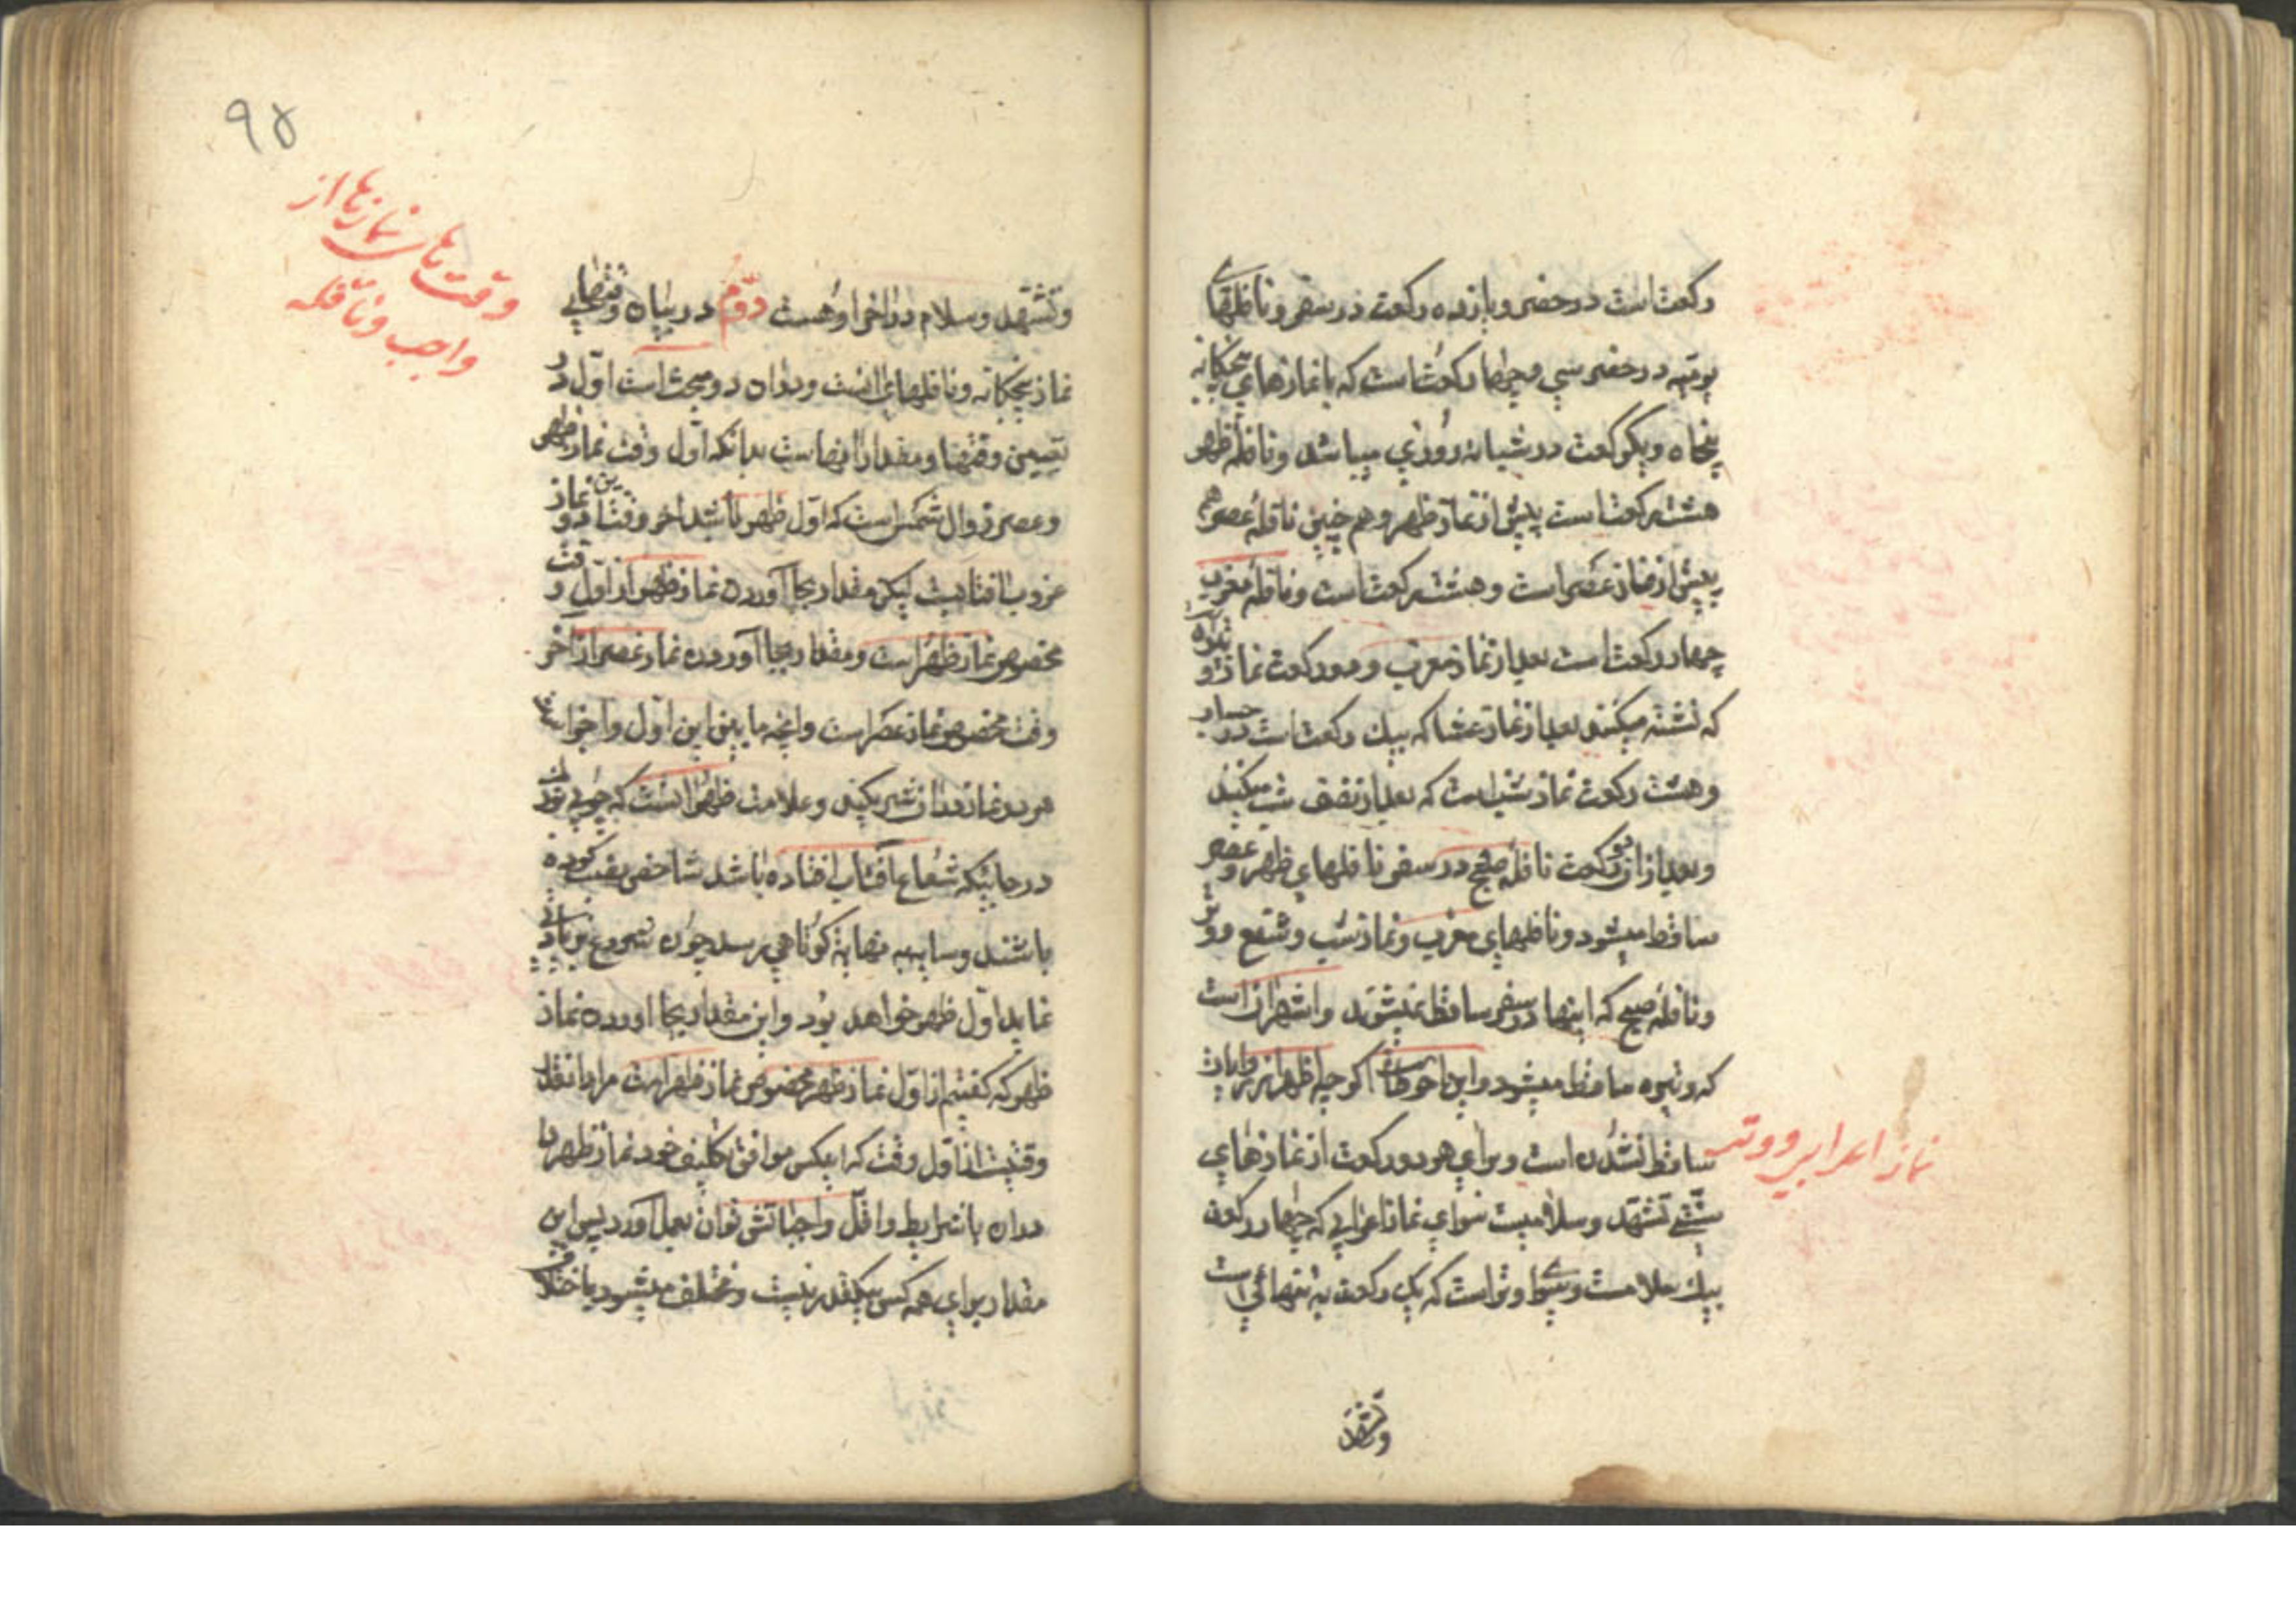 ركعت است در حضر و يازده ركعت در سفر و نافلهاى
يوميه در حضر سي و چهار ركعت است كه با نمازهاي پنجكانه
پنجاه و يكركعت در شبانه روزي ميباشد و نافلهٔ ظهر
هشت ركعت است پيش از نماز ظهر و هم چنين نافلهٔ عصر هم
پيش از نماز عصر است و هشت ركعت است و نافلهٔ مغرب
چهار ركعت است بعد از نماز مغرب و دو ركعت نماز وتيره
كه نشسته ميكنند بعد از نماز عشا كه بيك ركعت است در حساب
و هشت ركعت نماز شب است كه بعد از نصف شب ميكنند
و بعد از ان دو ركعت نافلهٔ صبح در سفر نافلهاي ظهر و عصر
ساقط ميشود و نافلهاي مغرب و نماز شب و شفع و وتر
و نافلهٔ صبح كه اينها در سفر ساقط نميشوند و اشهر ان است
كه وتيره ساقط ميشود و اين احوط است اكرچه اظهر از روايات
ساقط نشدن است و براي هر دو ركعت از نمازهاي
سنتي تشهد و سلاميست سواي نماز اعرابي كه چهار ركعت
بيك سلام است و سواى وتر است كه يك ركعت به تنهائي است
نماز اعرابي و وتر
و تشهد
۹۵
وقت هاى نمازها از
واجب و نافله
و تشهد و سلام در اخر او هست دوّم در بيان وقتهاي
نماز پنجكانه و نافلهاي انست و در ان دو مبحث است اوّل در
تعيين وقتها و مقدار انهاست بدانكه اوّل وقت نماز ظهر
و عصر زوال شمس است كه اوّل ظهر باشد اخر وقت اين دو نماز
غروب افتابست ليكن مقدار بجا آوردن نماز ظهر از اوّل وقت
مخصوص نماز ظهر است و مقدار بجا آوردن نماز عصر از اخر
وقت مخصوص نماز عصر است و انچه ما بين اين اوّل و اخر است
هر دو نماز در ان شريكند و علامت ظهر انست كه چوبي
در جائيكه شعاع آفتاب افتاده باشد شاخص نصب كرده
باشند و سايه به نهايت كوتاهي برسد چون شروع بزيادتي
نمايد اوّل ظهر خواهد بود و اين مقدار بجا اوردن نماز
ظهر كه كفتيم از اوّل نماز ظهر مخصوص نماز ظهر است مراد انقدر
وقتيست از اوّل وقت كه ايكس موافق تكليف خود نماز ظهر را
در ان با شرايط و اقلّ واجباتش توان بعمل آورد پس اين
مقدار براي همه كس بيكقدر نيست و مختلف ميشود باختلاف